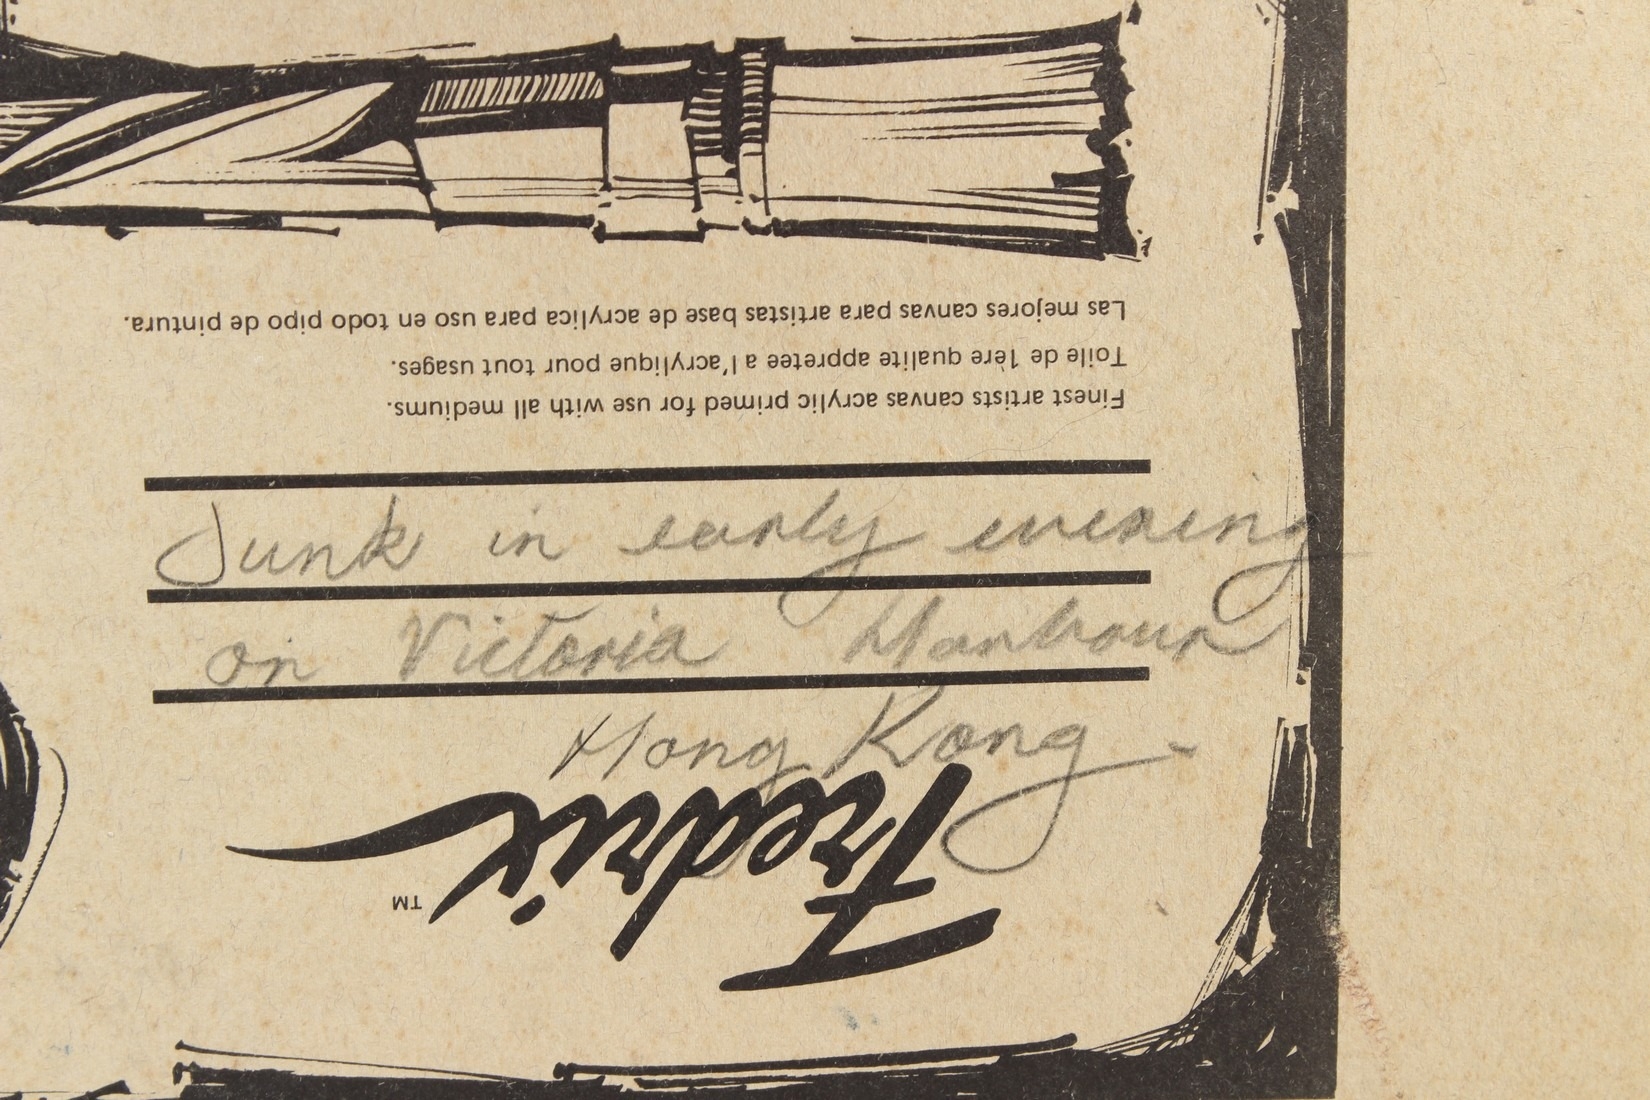 Las mejores canvas para artistas base de acrylica para uso en todo pipo de pintura.
Toile de 1ère qualite appretee a l'acrylique pour tout usages.
Finest artists canvas acrylic primed for use with all mediums.
Junk in early evening
on Victoria Harbour
Hong Kong -
Fredrix
TM